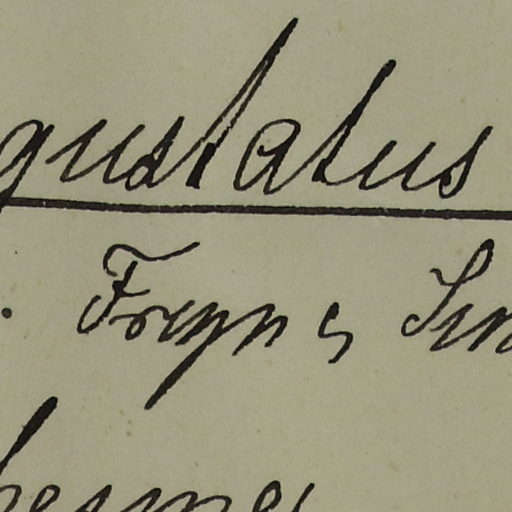 gustatus
. Freyn & Sin